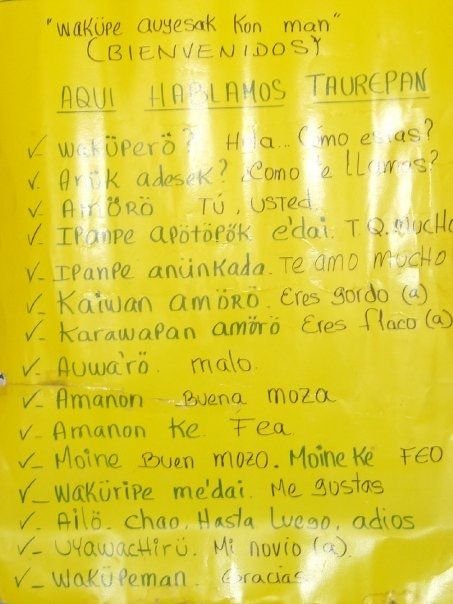 "Waküpe auyesak kon man"
(BIENVENIDOS)
AQUI HABLAMOS TAUREPAN
✓- waküperö? Hola... Cómo estas?
✓- Anük adesek? ¿Como te llamas?
✓- AMÖRÖ TÚ, USTED.
✓- IPANPE apötöpök e'dai. T.Q. MUCHO
✓- IPANPE anünkada. Te amo mucho
✓- Kaiwan amörö. Eres gordo (a)
✓- Karawapan amörö Eres flaco (a)
✓- Auwa'rö. malo.
✓- Amanon Buena moza
✓- Amanon ke. Fea.
✓- Moine Buen mozo. Moine Ké FEO
✓- waküripe me'dai. Me gustas
✓- Ailö. chao, Hasta Luego, adios
✓- Uyawachirü. Mi novio (a).
✓- waküpeman. Gracias